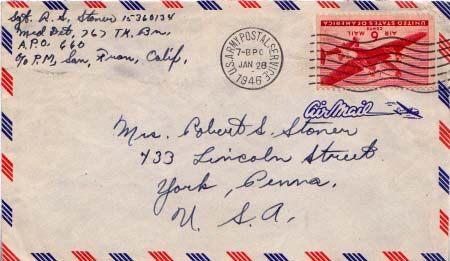 Sgt. R. S. Stoner 15360134
Med Det, 767 TK. Bn.
A.P.O. 660
c/o P.M, San, Fran, Calif,
U.S. ARMY POSTAL SERVICE
7-8 PC
JAN 28
1946
UNITED STATES OF AMERICA
6 CENTS
AIR MAIL
Air Mail
Mrs. Robert S. Stoner
433 Lincoln Street.
York, Penna.
U. S. A.